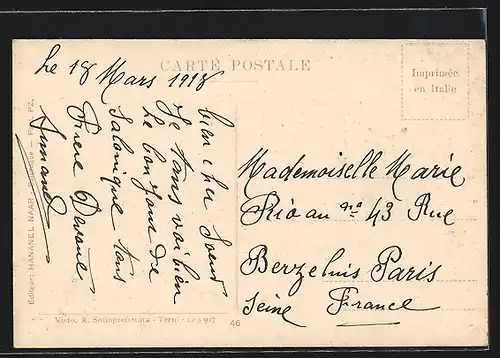 CARTE POSTALE
Imprimée
en Italie
Le 18 Mars 1918
bien cher Soeur
Je tans voi bien
Le bonjour de
Salonique tans
Frere Devoué
Armand
Mademoiselle Marie
Rio au no 43 Rue
Berzelius Paris
Seine France
Editeur: HANANEL NAAR
Visto, R. Sottoprefettura - Terni 917
46